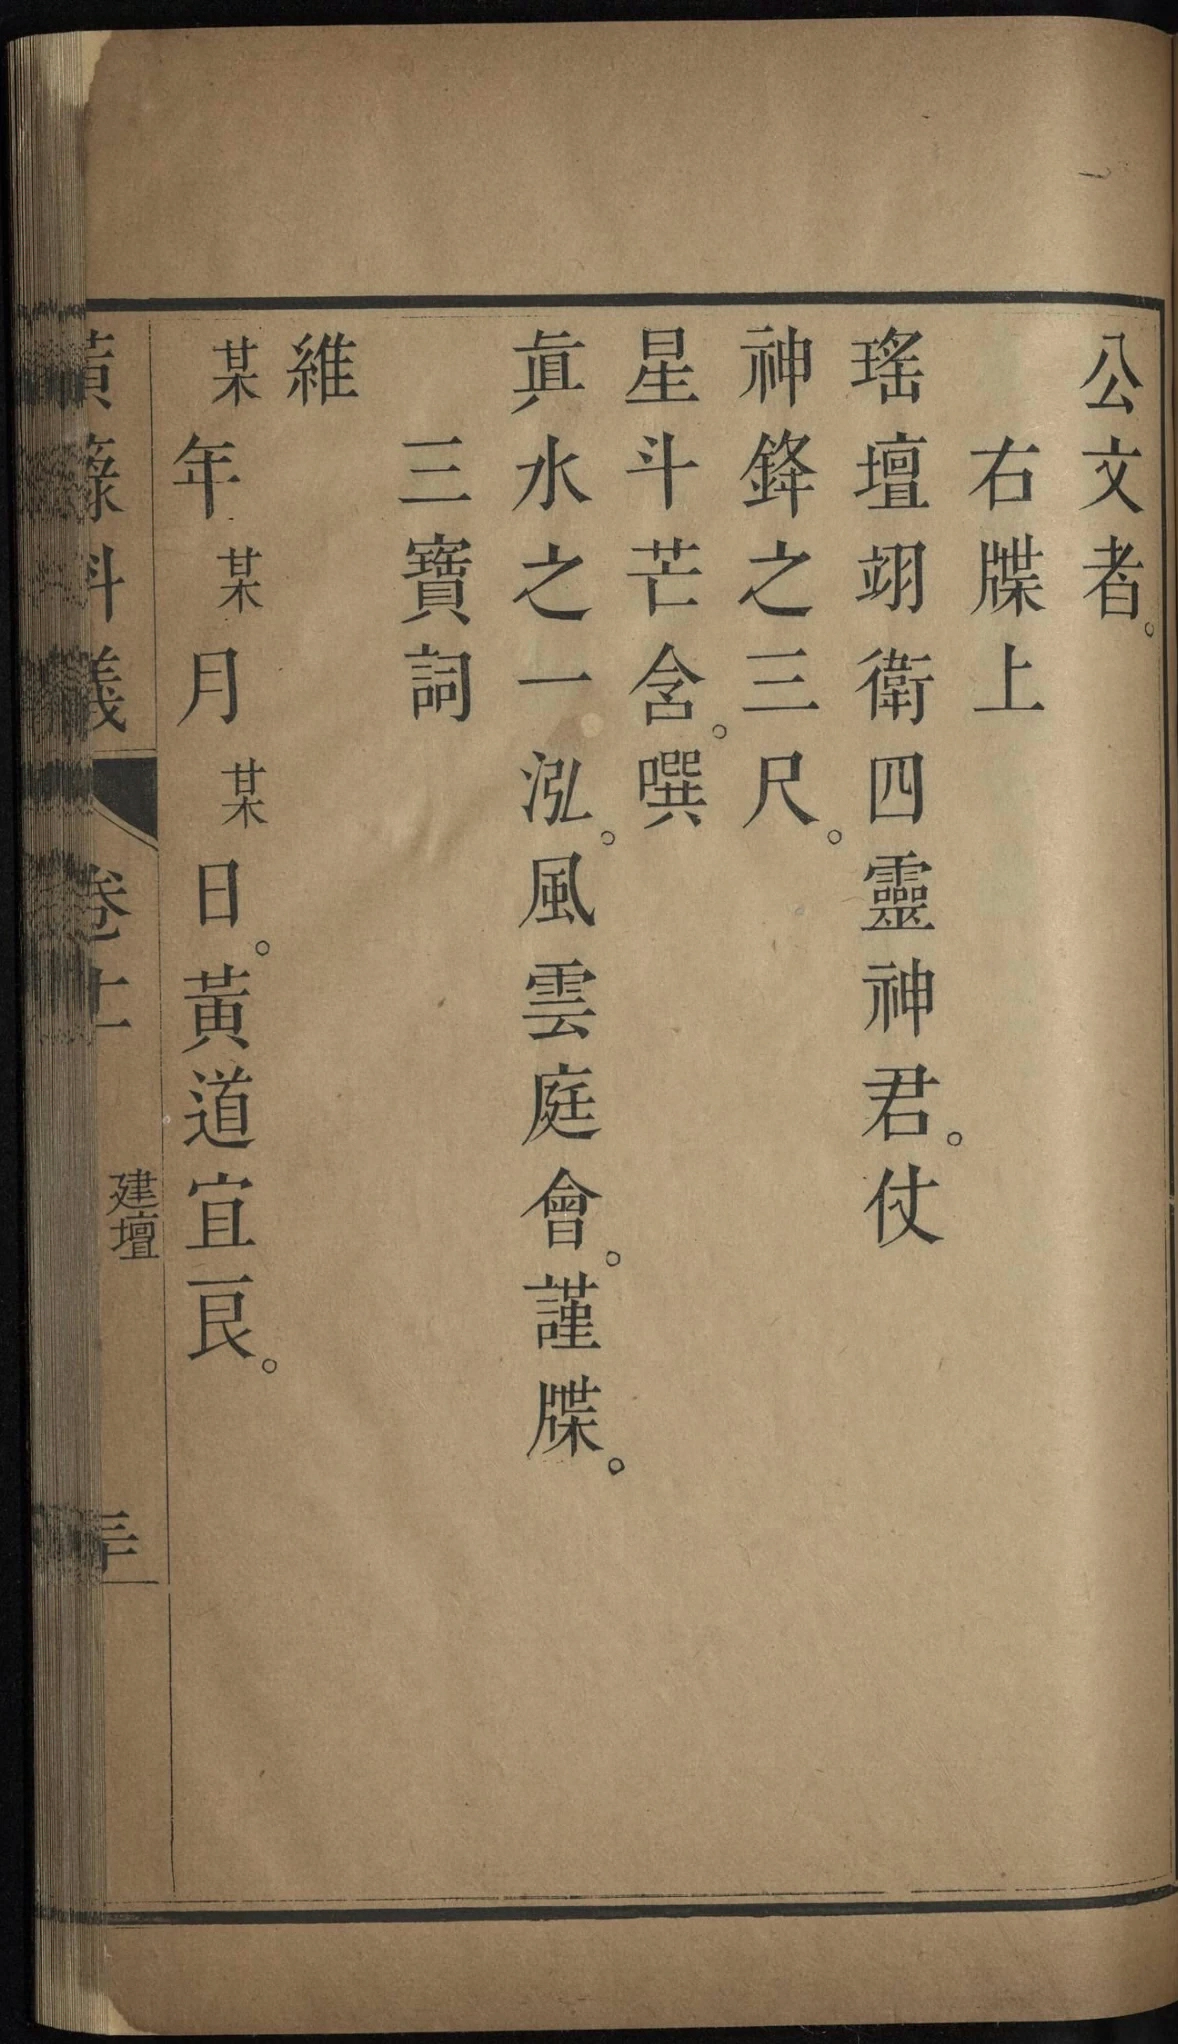 公文者。
右牒上
瑤壇翊衛四靈神君。仗
神鋒之三尺。
星斗芒含。噀
眞水之一泓。風雲庭會。謹牒。
三寶詞
維
某年某月某日。黃道宜良。
黃籙科儀 卷十 建壇